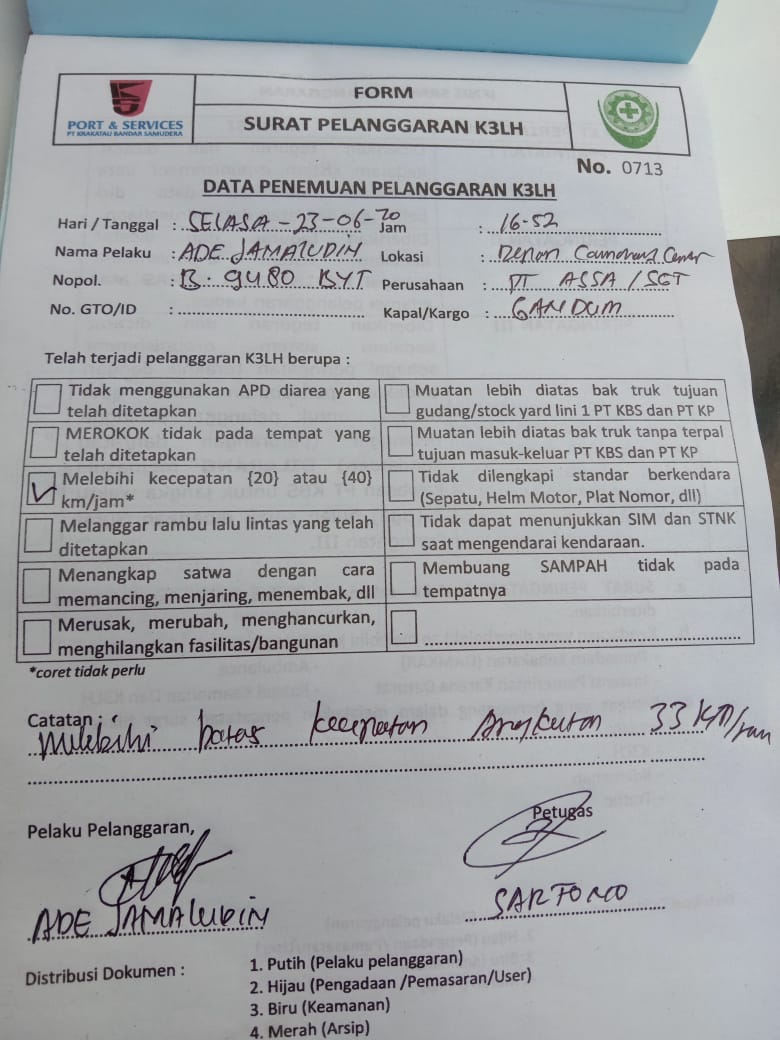 PORT & SERVICES
PT KRAKATAU BANDAR SAMUDERA
FORM
SURAT PELANGGARAN K3LH
No. 0713
DATA PENEMUAN PELANGGARAN K3LH
Hari / Tanggal : SELASA - 23-06-20 Jam : 16-52
Nama Pelaku : ADE JAMALUDIN Lokasi :
Nopol. : B. 9480 BYT Perusahaan : PT ASSA / SGT
No. GTO/ID : Kapal/Kargo : GANDUM
Telah terjadi pelanggaran K3LH berupa :
Tidak menggunakan APD diarea yang
telah ditetapkan
Muatan lebih diatas bak truk tujuan
gudang/stock yard lini 1 PT KBS dan PT KP
MEROKOK tidak pada tempat yang
telah ditetapkan
Muatan lebih diatas bak truk tanpa terpal
tujuan masuk-keluar PT KBS dan PT KP
Melebihi kecepatan {20} atau {40}
km/jam*
Tidak dilengkapi standar berkendara
(Sepatu, Helm Motor, Plat Nomor, dll)
Melanggar rambu lalu lintas yang telah
ditetapkan
Tidak dapat menunjukkan SIM dan STNK
saat mengendarai kendaraan.
Menangkap satwa dengan cara
memancing, menjaring, menembak, dll
Membuang SAMPAH tidak pada
tempatnya
Merusak, merubah, menghancurkan,
menghilangkan fasilitas/bangunan
*coret tidak perlu
Catatan :
Melebihi batas kecepatan Angkutan 33 KM/jam
Pelaku Pelanggaran,
Petugas
ADE JAMALUDIN
SARTONO
Distribusi Dokumen :
1. Putih (Pelaku pelanggaran)
2. Hijau (Pengadaan /Pemasaran/User)
3. Biru (Keamanan)
4. Merah (Arsip)